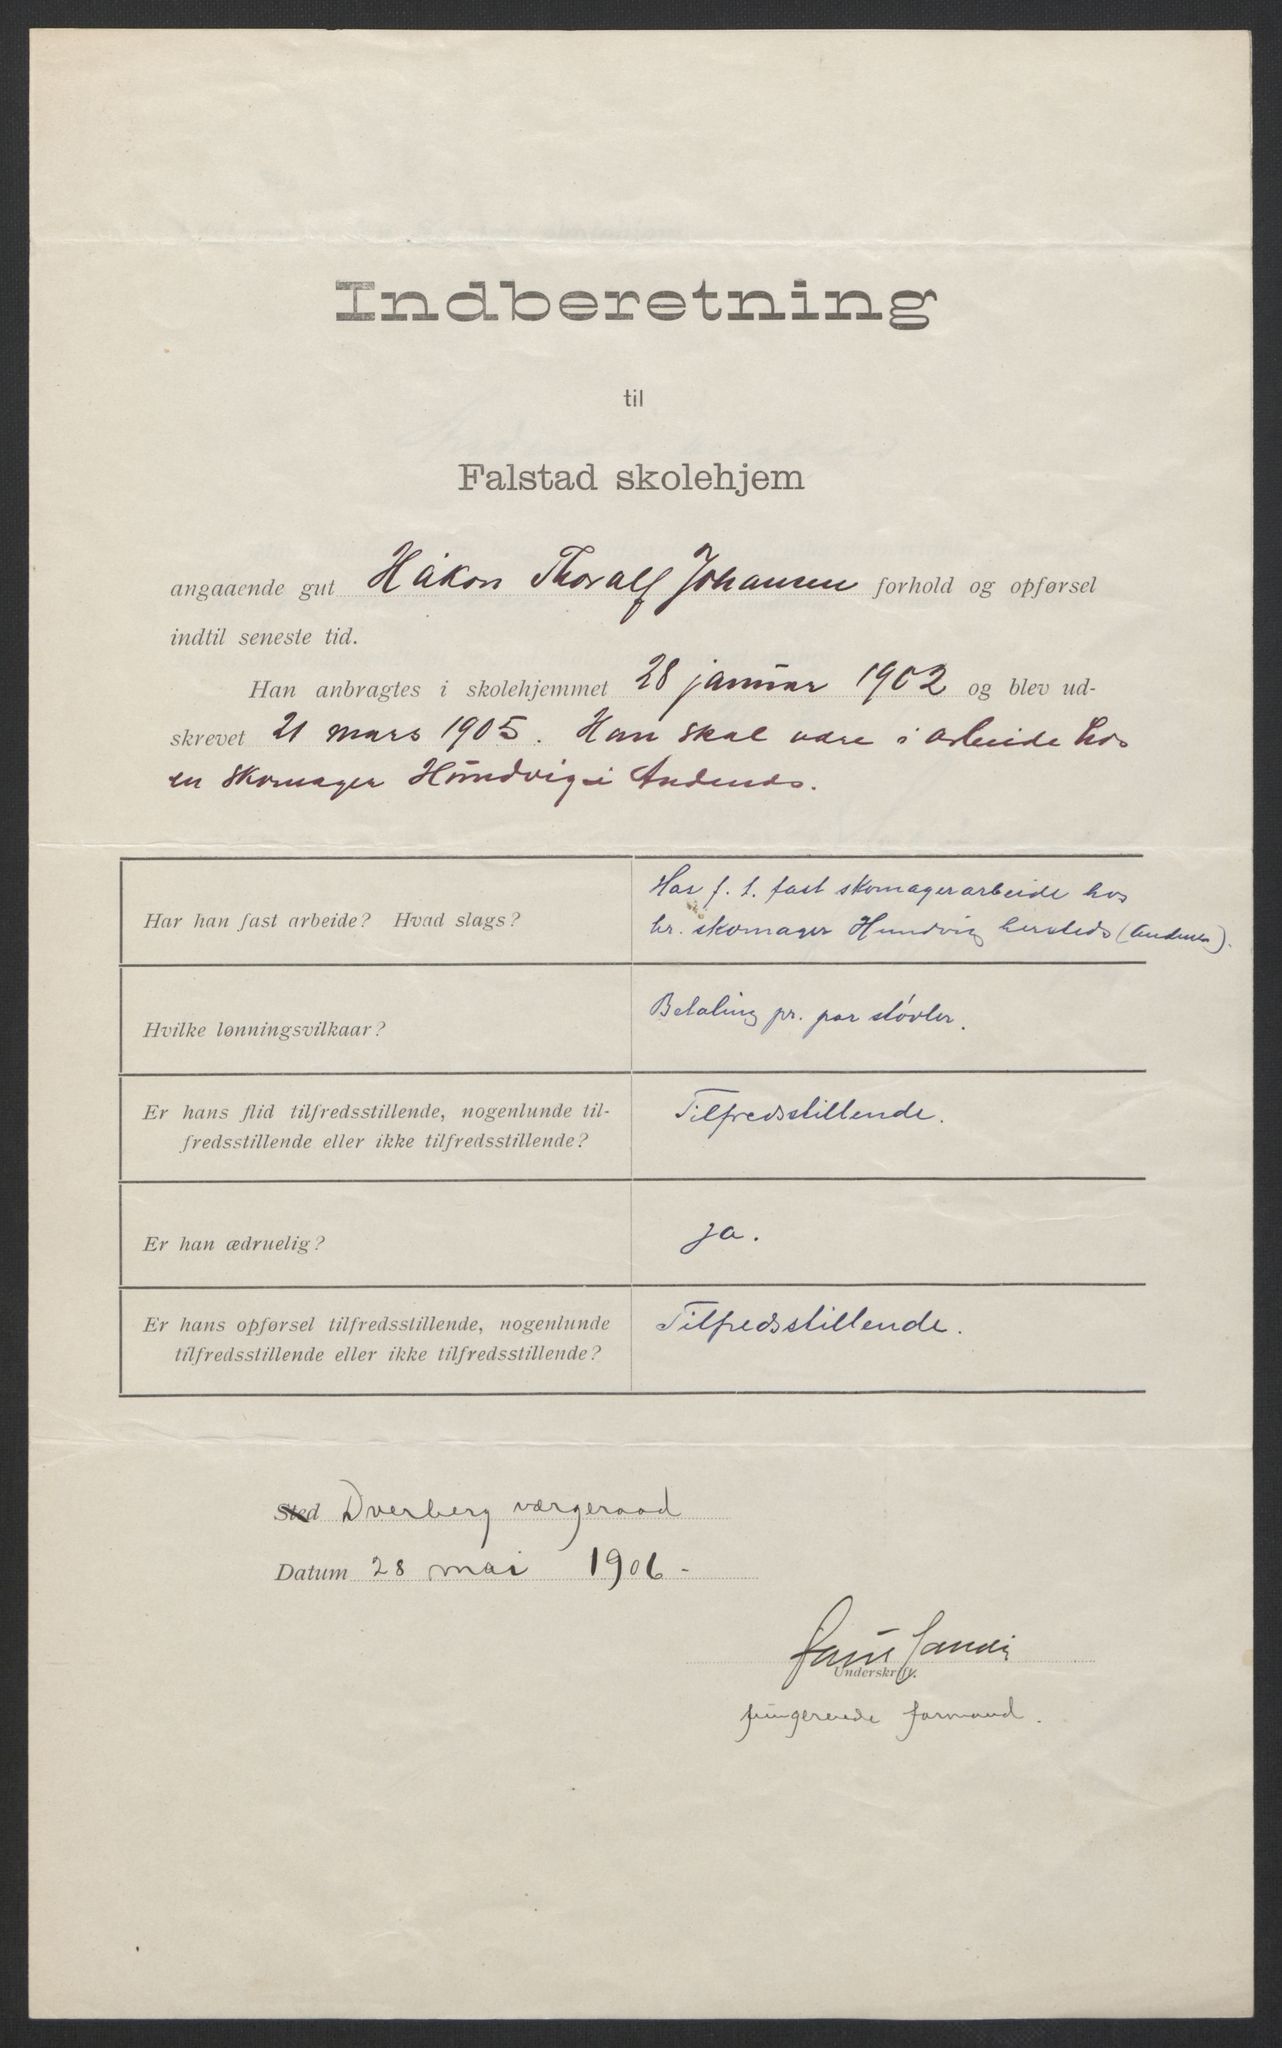 Indberetning
til
Falstad skolehjem
angaaende gut Håkon Thoralf Johansen forhold og opførsel
indtil seneste tid.
Han anbragtes i skolehjemmet 28 januar 1902 og blev ud-
skrevet 21 mars 1905. Han skal være i arbeide hos
en skomager Hundvig i Andenes.
Har han fast arbeide? Hvad slags?
Har f. t. fast skomagerarbeide hos
hr. skomager Hundvig hersteds (Andenes).
Hvilke lønningsvilkaar?
Betaling pr. par støvler.
Er hans flid tilfredsstillende, nogenlunde til-
fredsstillende eller ikke tilfredsstillende?
Tilfredsstillende.
Er han ædruelig?
Ja.
Er hans opførsel tilfredsstillende, nogenlunde
tilfredsstillende eller ikke tilfredsstillende?
Tilfredsstillende.
Sted Dverberg værgeraad
Datum 28 mai 1906-
Underskrift.
fungerende formand.